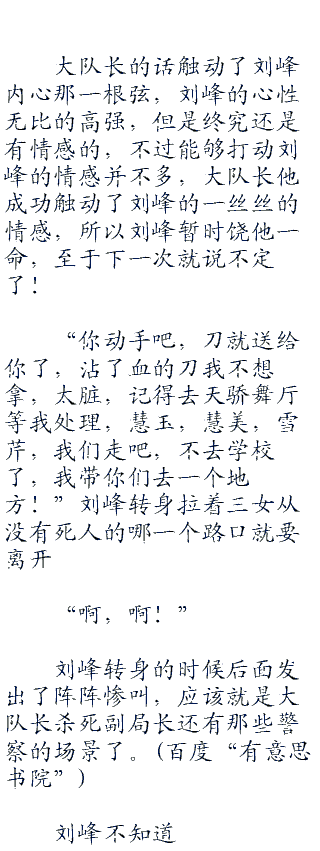 大队长的话触动了刘峰
内心那一根弦，刘峰的心性
无比的高强，但是终究还是
有情感的，不过能够打动刘
峰的情感并不多，大队长他
成功触动了刘峰的一丝丝的
情感，所以刘峰暂时饶他一
命，至于下一次就说不定
了！
“你动手吧，刀就送给
你了，沾了血的刀我不想
拿，太脏，记得去天骄舞厅
等我处理，慧玉，慧美，雪
芹，我们走吧，不去学校
了，我带你们去一个地
方！”刘峰转身拉着三女从
没有死人的哪一个路口就要
离开
“啊，啊！”
刘峰转身的时候后面发
出了阵阵惨叫，应该就是大
队长杀死副局长还有那些警
察的场景了。(百度“有意思
书院”)
刘峰不知道